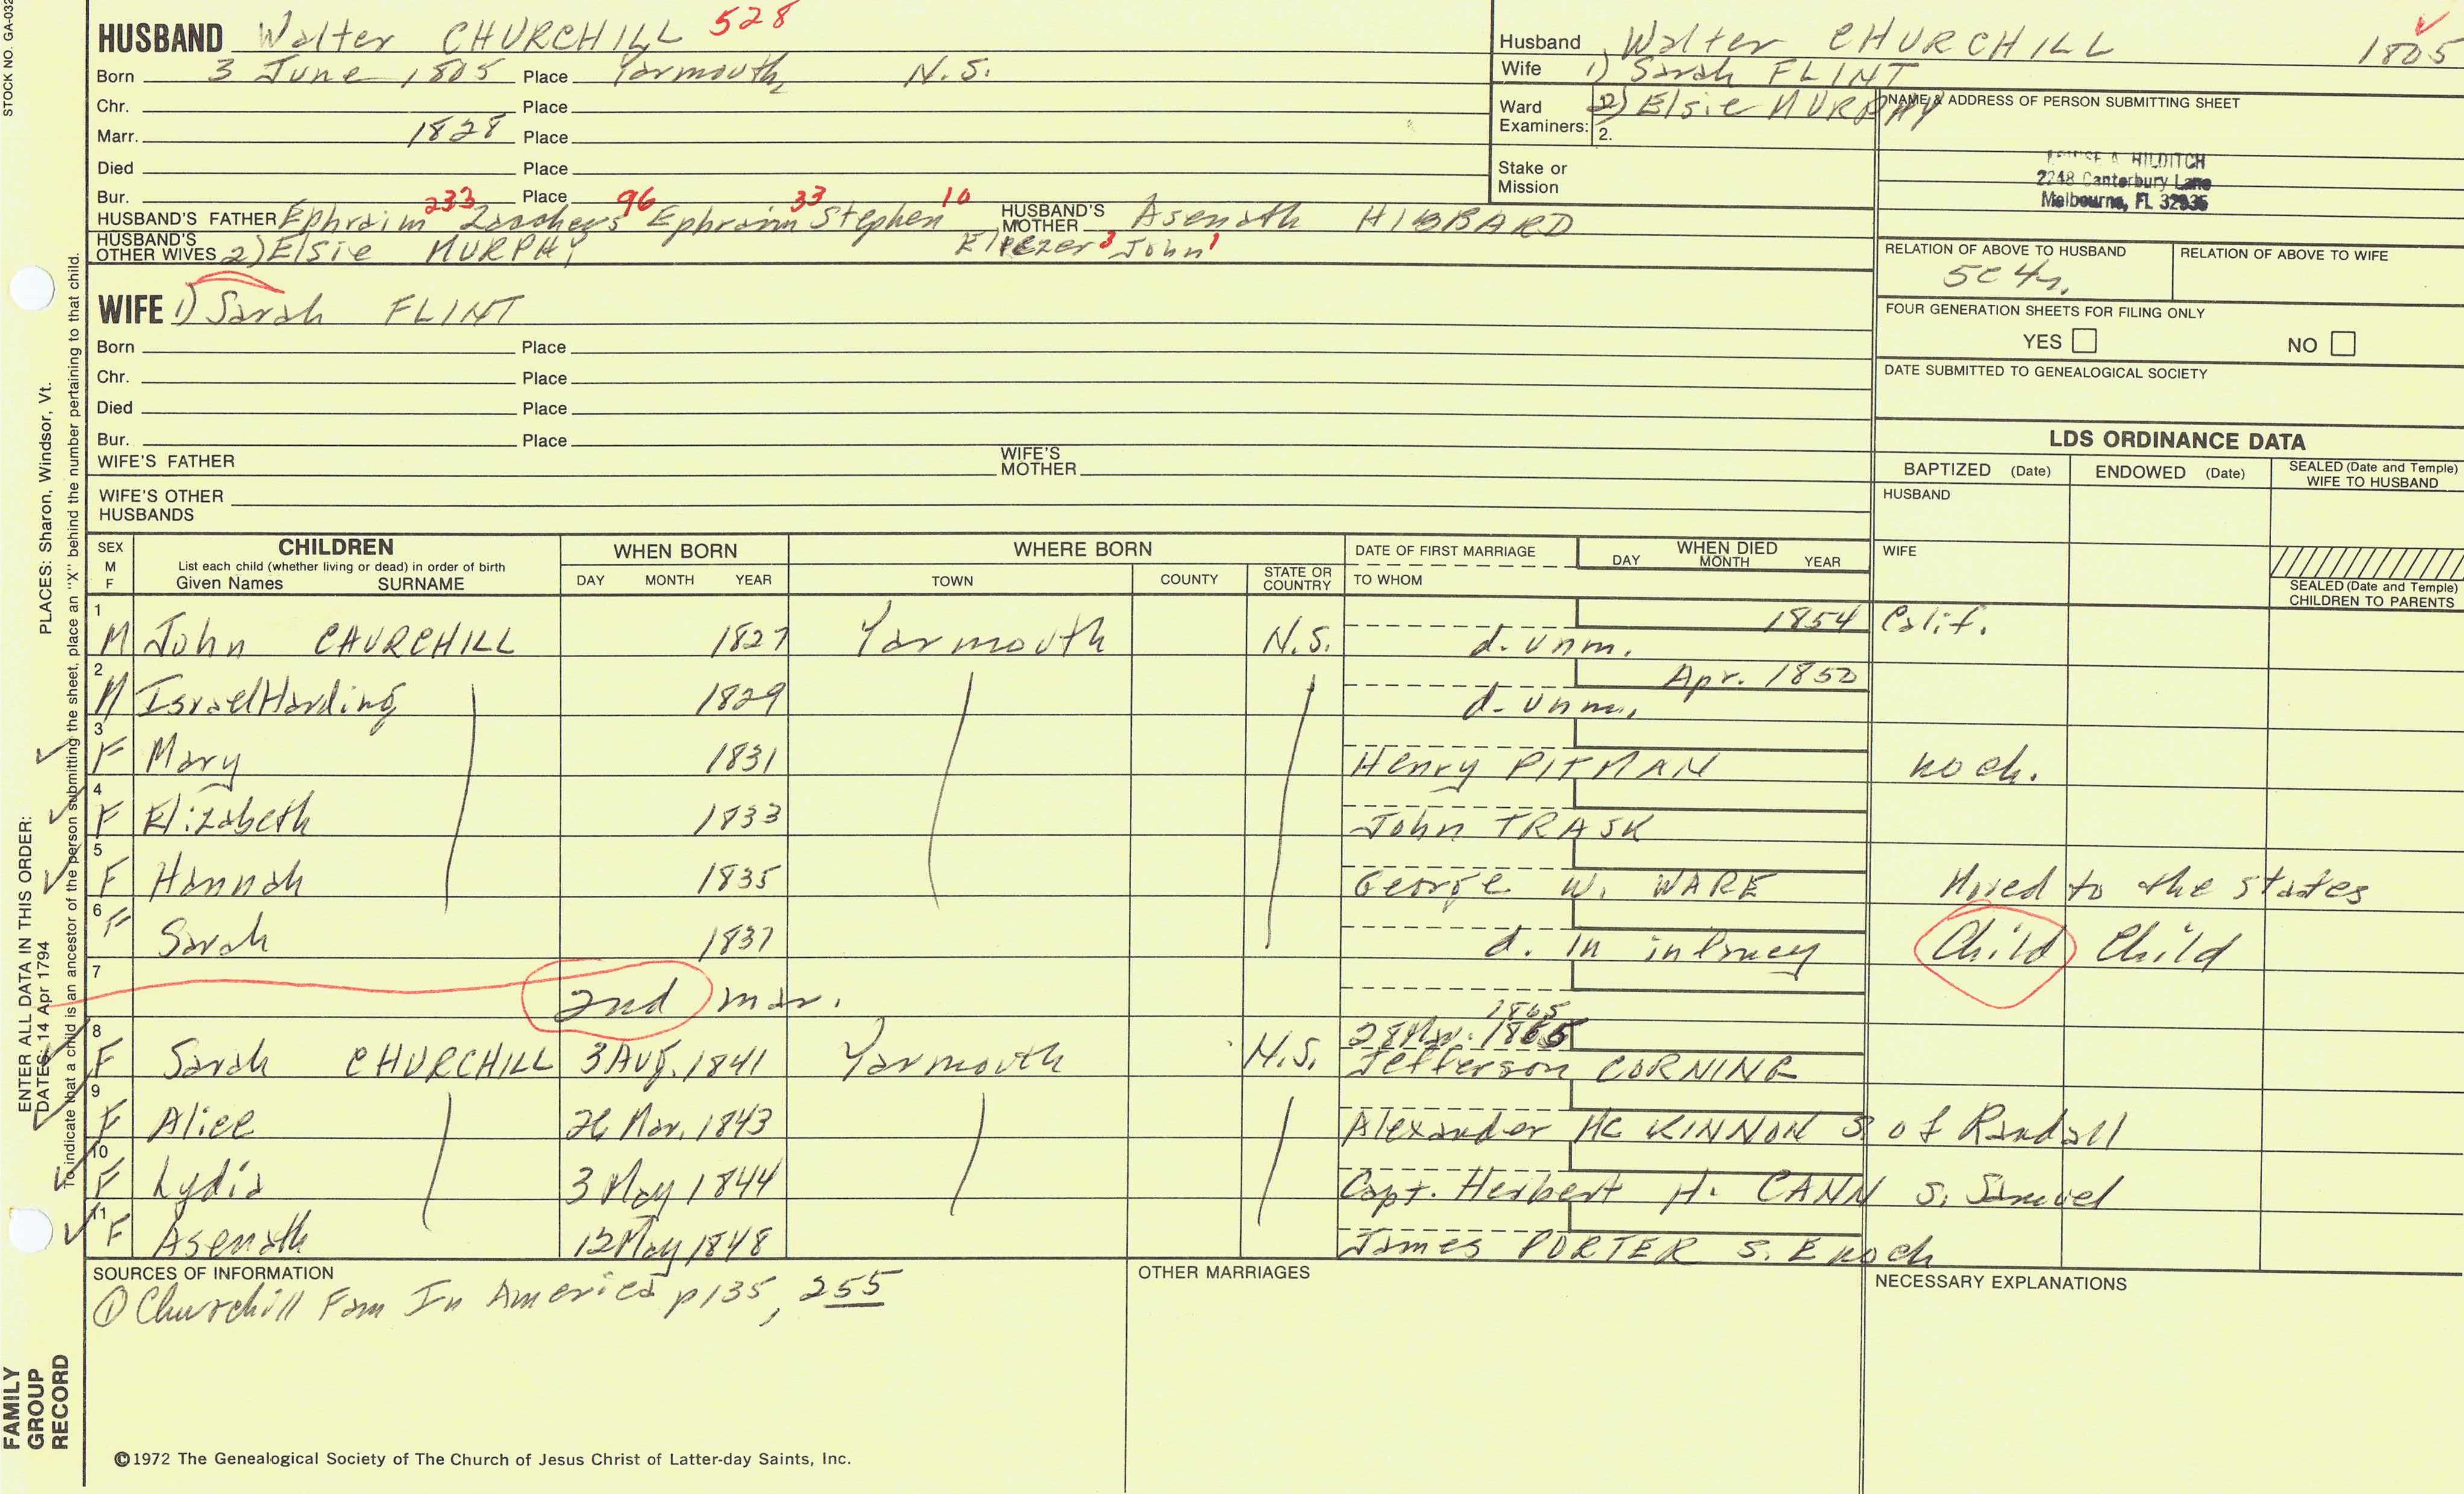 STOCK NO. GA-032
HUSBAND Walter CHURCHILL 528
Born 3 June 1805 Place Yarmouth, N.S.
Chr. Place
Marr. 1828 Place
Died Place
Bur. Place
HUSBAND'S FATHER Ephraim 233 Zacheus 96 Ephraim 33 Stephen 10 HUSBAND'S MOTHER Asenath HIBBARD
Eliezer 3 John 1
HUSBAND'S OTHER WIVES 2) Elsie MURPHY
WIFE 1) Sarah FLINT
Born Place
Chr. Place
Died Place
Bur. Place
WIFE'S FATHER WIFE'S MOTHER
WIFE'S OTHER HUSBANDS
Husband Walter CHURCHILL 1805
Wife 1) Sarah FLINT
Ward Examiners: 2) Elsie MURPHY
2.
Stake or Mission
NAME & ADDRESS OF PERSON SUBMITTING SHEET
A. HILDITCH
2248 Canterbury Lane
Melbourne, FL 32935
RELATION OF ABOVE TO HUSBAND RELATION OF ABOVE TO WIFE
5C4r.
FOUR GENERATION SHEETS FOR FILING ONLY
YES NO
DATE SUBMITTED TO GENEALOGICAL SOCIETY
LDS ORDINANCE DATA
BAPTIZED (Date) ENDOWED (Date) SEALED (Date and Temple) WIFE TO HUSBAND
HUSBAND
WIFE
SEALED (Date and Temple) CHILDREN TO PARENTS
SEX M F
CHILDREN
List each child (whether living or dead) in order of birth
Given Names SURNAME
WHEN BORN
DAY MONTH YEAR
WHERE BORN
TOWN COUNTY STATE OR COUNTRY
DATE OF FIRST MARRIAGE
TO WHOM
WHEN DIED
DAY MONTH YEAR
1 M John CHURCHILL 1827 Yarmouth N.S. d. unm. 1854 Calif.
2 M Israel Harding 1829 d. unm. Apr. 1850
3 F Mary 1831 Henry PITMAN no ch.
4 F Elizabeth 1833 John TRASK
5 F Hannah 1835 George W. WARE Moved to the states
6 F Sarah 1837 d. in infancy Child Child
7 2nd mar.
8 F Sarah CHURCHILL 3 Aug. 1841 Yarmouth N.S. 1865 1865 Jefferson CORNING
9 F Alice 26 Mar. 1843 Alexander Mc KINNON s of Randall
10 F Lydia 3 May 1844 Capt. Herbert H. CANN s. Samuel
11 F Asenath 12 May 1848 James PORTER s. Enoch
SOURCES OF INFORMATION
① Churchill Fam In America p 135, 255
OTHER MARRIAGES
NECESSARY EXPLANATIONS
©1972 The Genealogical Society of The Church of Jesus Christ of Latter-day Saints, Inc.
FAMILY GROUP RECORD
ENTER ALL DATA IN THIS ORDER:
DATES: 14 Apr 1794
PLACES: Sharon, Windsor, Vt.
To indicate that a child is an ancestor of the person submitting the sheet, place an "X" behind the number pertaining to that child.